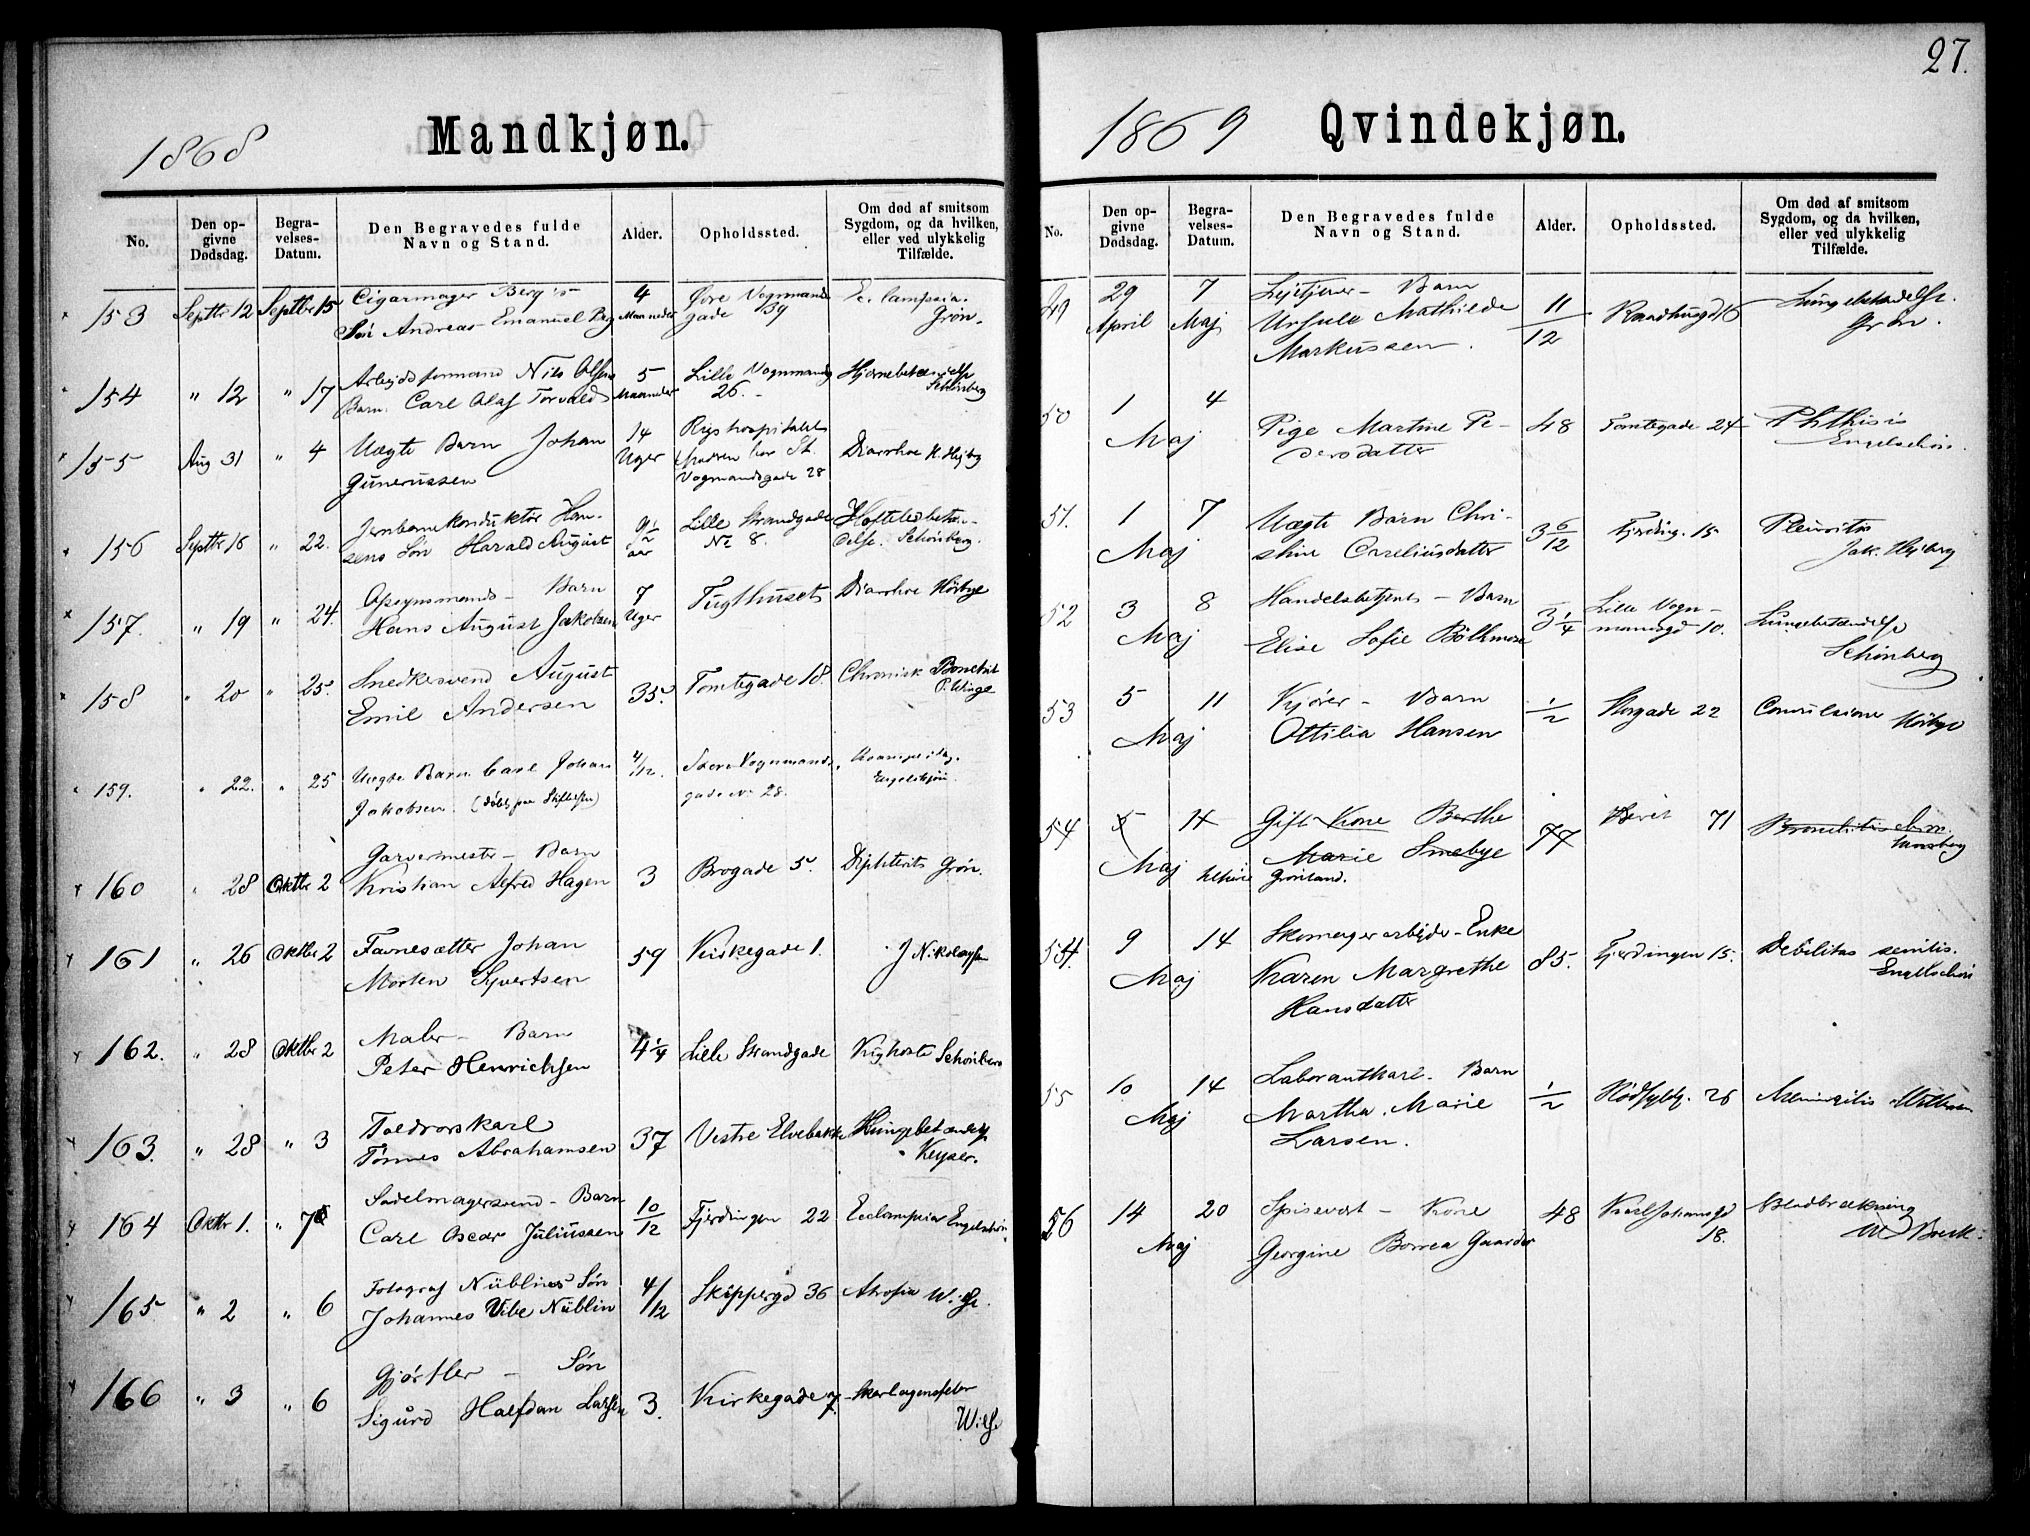 27.
1868
Mandkjøn.
No.
Den op-
givne
Dødsdag.
Begra-
velses-
Datum.
Den Begravedes fulde
Navn og Stand.
Alder.
Opholdssted.
Om død af smitsom
Sygdom, og da hvilken,
eller ved ulykkelig
Tilfælde.
153 Septbr 12 Septbr 15 Cigarmager Berg's 4 Øvre Vognmands Eclampsia.
Søn Andreas Emanuel Berg Maaneder gade 39 Grøn.
154 " 12 " 17 Arbejdsformand Nils Olsens 5 Lille Vognmandsg Hjernebetændelse
Barn. Carl Olaf Torvald Maaneder 26. Schönberg
155 Aug 31 " 4 Uægte Barn Johan 14 Rigshospitalet
Gunerussen Uger St. Diarrhoe
Vogmandsgade 28
156 Septbr 18 " 22. Jernbanekonduktör Han- 9 1/2 Lille Strandgade Hofteledbetæn-
sens Søn Harald August aar No 8. delse. Schönberg.
157. " 19 " 24. Opsynsmands Barn 7 Tugthuset Diarrhoe Hörbye
Hans August Jakobsen Uger
158 " 20 " 25. Snedkersvend August 35. Tomtegade 18. Chronisk
Emil Andersen P. Winge
159. " 22. " 25 Uægte Barn Carl Johan 4/12. Store Vognmands-
Jakobsen. (døbt paa Stiftelsen) gade No 28.
160 " 28 Oktbr 2 Garvermester - Barn 3 Brogade 5. Diphterit Grön.
Kristian Alfred Hagen
161 " 26 Oktbr 2 Johan 59 Kirkegade 1. J Nikolaysen
Morten Syvertsen
162. " 28 Oktbr 2 Maler - Barn 4 1/4 Lille Strandgade Kighoste Schönberg
Peter Henrichsen
163. " 28 " 3 37 Vestre Elvebakke Lungebetændelse
Tönnes Abrahamsen Keyser.
164 Oktbr 1. " 7 Sadelmagersvend - Barn 10/12 Fjerdingen 22 Eclampsia Engelschön
Carl Oscar Juliussen
165 " 2 " 6 Fotograf Nüblins Søn 4/12 Skippergd 36 Atrofia Wilse.
Johannes Vibe Nüblin
166 " 3 " 6 Gjørtler - Søn 3. Kirkegade 7. Skarlagensfeber
Sigurd Halfdan Larsen Wilse
1869
Qvindekjøn.
No.
Den op-
givne
Dødsdag.
Begra-
velses-
Datum.
Den Begravedes fulde
Navn og Stand.
Alder.
Opholdssted.
Om død af smitsom
Sygdom, og da hvilken,
eller ved ulykkelig
Tilfælde.
49 29 7 Barn 11/12 Raadhusgd 16 Lungebetændelse.
April Maj Ursula Mathilde Grön.
Markussen.
50 1 4
Maj Pige Martine Pe- 48 Tomtegade 24 Phthisis
dersdatter Engelschön.
51. 1 7 Uægte Barn Chri- 3 6/12 Fjerding. 15 Pleuritis
Maj stine Corneliusdatter Jak. Hejberg
52 3 8 Handelsbetjent - Barn 3 1/4 Lille Vogn- Lungebetændelse
Maj Elise Sofie mannsgd 10. Schönberg
53 5 11 Kjører - Barn 1/2 Storgade 22 Convulsioner Hörbye
Maj Ottilia Hansen
54 5 14 Gift Kone Berthe 77 71 Bronchitis chron.
Maj Marie Smebye
Grönland.
54. 9 14 Skomagerarbejder - Enke 85. Fjerdingen 15. Debilitas senilis.
Maj Karen Margrethe Engelschön
Hansdatter
55 10 14 Laborantkarl - Barn 1/2 Rödfyldg. 26 Meningitis
Maj Martha Marie
Larsen.
56 14 20 Spisevert - Kone 48 Karl Johansgd Blodbrækning
Maj Georgine Borrea Gaarder 18. W Boeck.